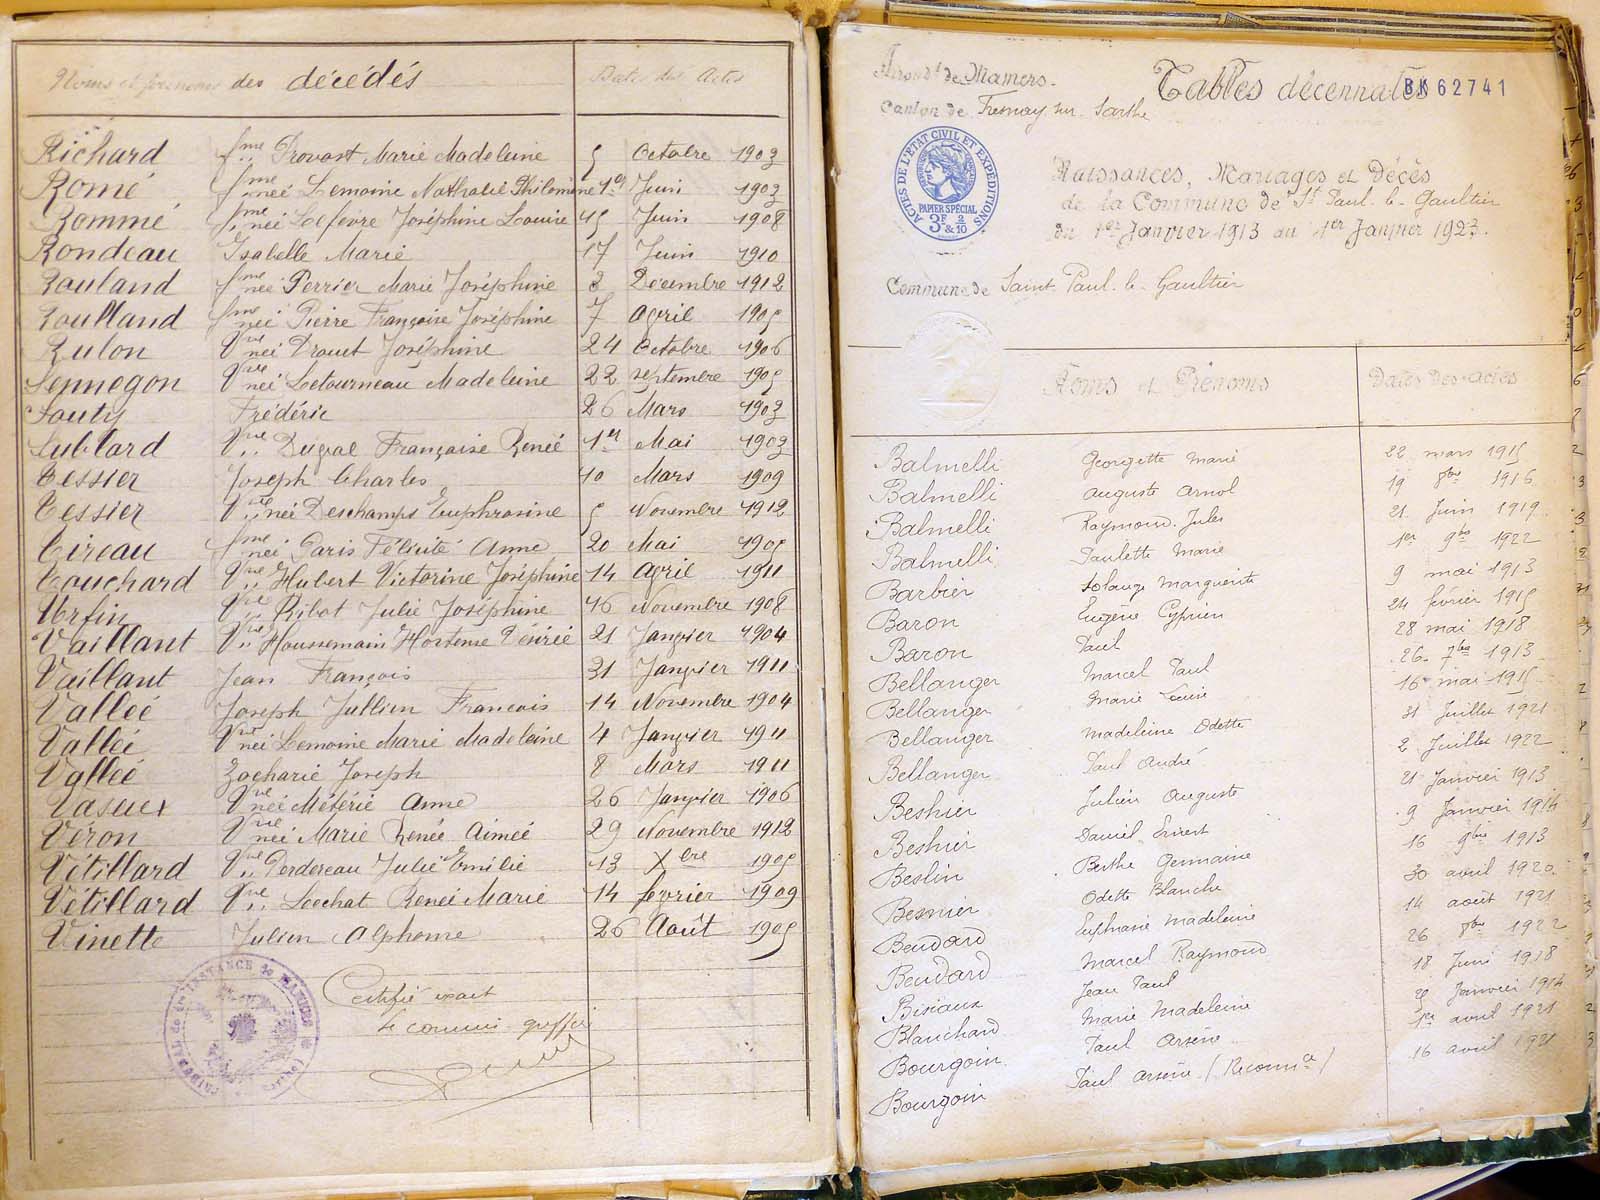 Noms et prénoms des décédés
Dates des Actes
Richard fme .. Provost Marie Madeleine 5 Octobre 1903
Romé fme née Lemoine Nathalie Philomène 1er Juin 1903
Rommé fme née Lefevre Joséphine Louise 15 Juin 1908
Rondeau Isabelle Marie 17 Juin 1910
Rouland fme née Perrier Marie Joséphine 3 Décembre 1912
Roulland fme née Pierre Françoise Joséphine 7 avril 1905
Rulon Vve née Drouet Joséphine 24 Octobre 1906
Sennegon Vve née Letourneau Madeleine 22 septembre 1905
Souty Frédéric 26 Mars 1903
Sublard Vve .. Duval Françoise Renée 1er Mai 1903
Tessier Joseph Charles 10 Mars 1909
Tessier Vve .. née Deschamps Euphrosine 5 Novembre 1912
Tireau fme née Paris Félicité Anne 20 Mai 1905
Touchard Vve .. Hubert Victorine Joséphine 14 avril 1911
Urfin Vve .. Ribot Julie Joséphine 16 Novembre 1908
Vaillant Vve .. Houssemain Hortense Désirée 21 Janvier 1904
Vaillant Jean François 31 Janvier 1911
Vallée Joseph Jullien Francois 14 Novembre 1904
Vallée Vve née Lemoine Marie Madeleine 4 Janvier 1911
Vallée Zacharie Joseph 8 Mars 1911
Vasseux Vve née Méterie Anne 26 Janvier 1906
Véron Vve née Marie Renée Aimée 29 Novembre 1912
Vétillard Vve .. Perdereau Julie Emilie 13 Xbre 1905
Vétillard Vve .. Lechat Renée Marie 14 fevrier 1909
Vinette Julien Alphonse 26 Août 1905
Certifié exact
le commis greffier
TRIBUNAL de 1re INSTANCE de MAMERS
Arrondt de Mamers.
Tables décennales
BK 62741
Canton de Fresnay sur Sarthe
ACTES DE L'ÉTAT CIVIL ET EXPÉDITIONS
PAPIER SPÉCIAL
3F & 2/10
Naissances, Mariages et Décès
de la Commune de St Paul-le-Gaultier
du 1er Janvier 1913 au 1er Janvier 1923.
Commune de Saint-Paul-le-Gaultier
Noms et Prénoms
Dates des actes
Balmelli Georgette Marie 22 mars 1915
Balmelli Auguste Arnol 19 8bre 1916
Balmelli Raymond Jules 21 Juin 1919
Balmelli Paulette Marie 1er 9bre 1922
Barbier Solange Marguerite 9 mai 1913
Baron Eugène Cyprien 24 février 1915
Baron Paul 28 mai 1918
Bellanger Marcel Paul 26 7bre 1913
Bellanger Marie Louise 16 mai 1915
Bellanger Madeleine Odette 31 Juillet 1921
Bellanger Paul André 2 Juillet 1922
Beshier Julien Auguste 21 Janvier 1913
Beshier Daniel Ernest 9 Janvier 1914
Beslin Berthe Germaine 16 9bre 1913
Besnier Odette Blanche 30 avril 1920
Beudard Euphrasie Madeleine 14 août 1921
Beudard Marcel Raymond 26 8bre 1922
Bisiaux Jean Paul 18 Juin 1918
Blanchard Marie Madeleine 20 Janvier 1914
Bourgoin Paul Arsène 1er avril 1921
Bourgoin Paul Arsène (Reconnce) 16 avril 1921